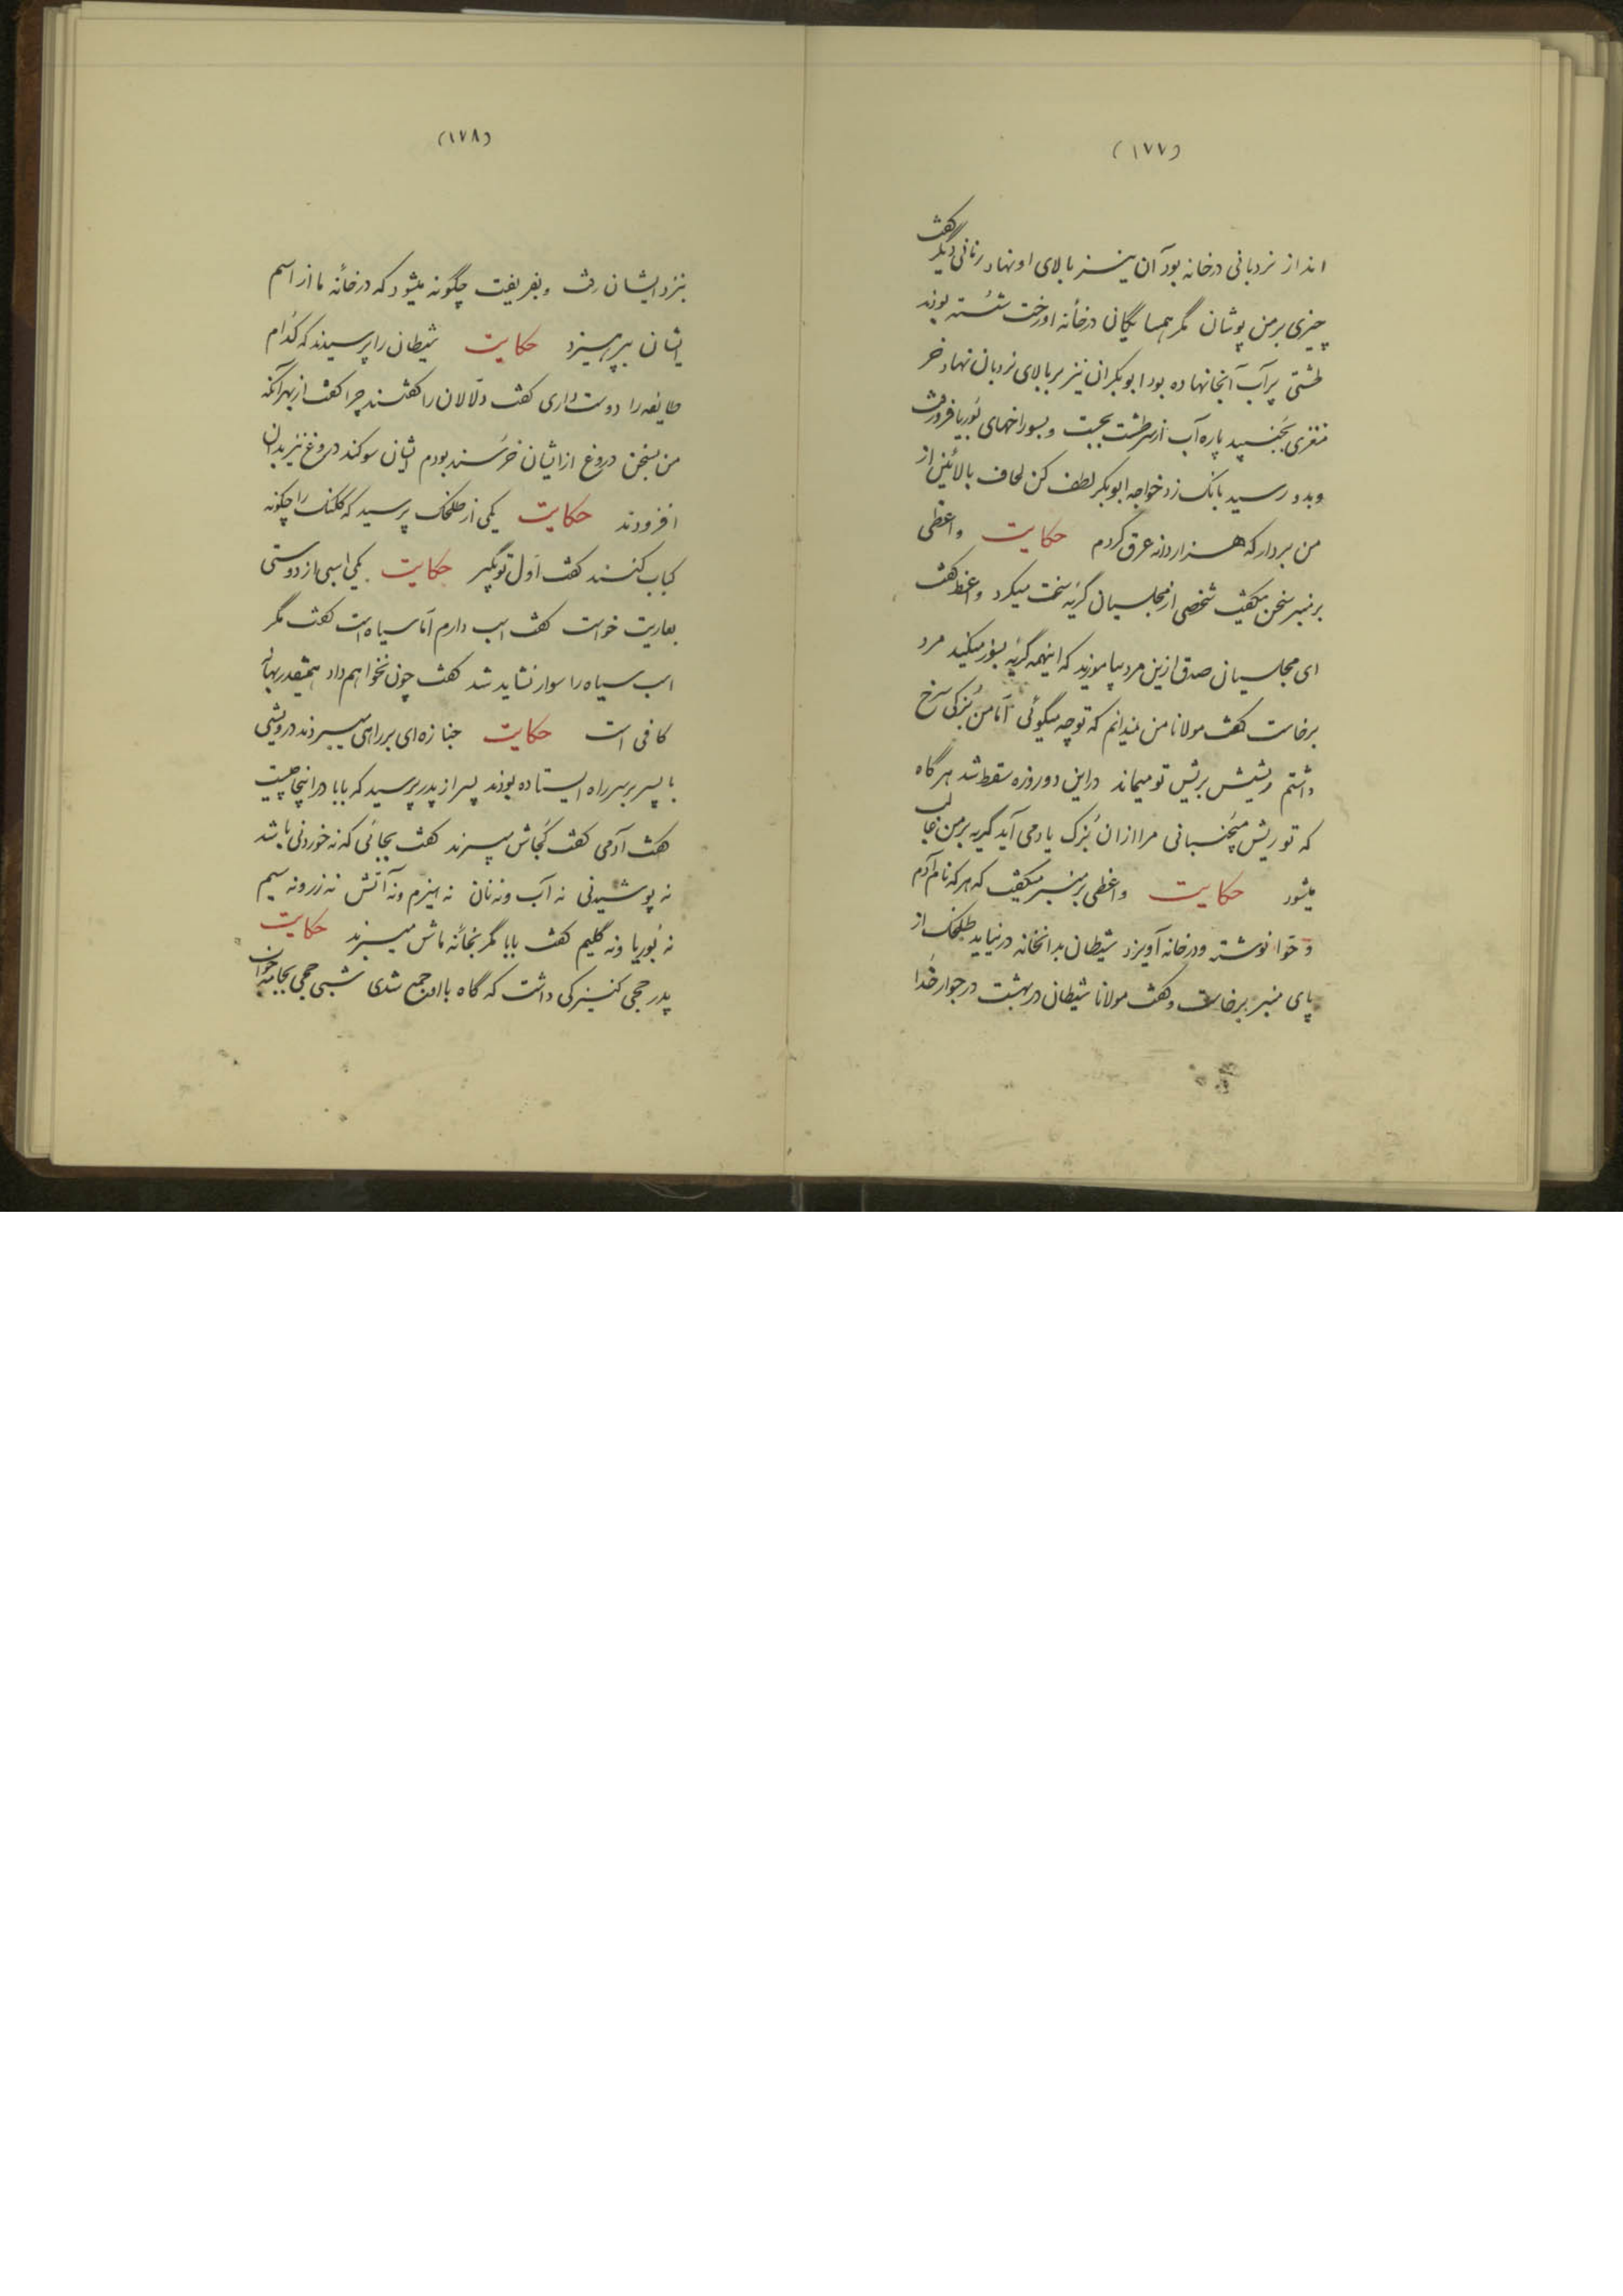 (۱۷۷)
انداز نردبانی درخانه بود آن نیز بالای او نهاد زمانی دیگر گفت
چیزی بر من پوشان مگر همسایگان درخانه او رخت شسته بودند
طشتی پر آب آنجا نهاده بود ابوبکر ان نیز بر بالای نردبان نهاد خر
بجنبید پاره آب از سر طشت بجست و بسوراخهای بوریا فرو رفت
وبدو رسید بانک زد خواجه ابوبکر لطف کن لحاف بالائین از
من بردار که هزار دانه عرق کردم حکایت واعظی
بر منبر سخن میگفت شخصی از مجلسیان گریه سخت میکرد واعظ گفت
ای مجلسیان صدق ازین مرد بیاموزید که اینهمه گریه بسوز میکنید مرد
برخاست گفت مولانا من نمیدانم که تو چه میگوئی اما من بزکی سرخ
داشتم ریشش بریش تو میماند دراین دو روزه سقط شد هر گاه
که تو ریش میجنبانی مرا ازان بزک یاد می آید گریه بر من غالب
میشود حکایت واعظی بر منبر میگفت که هر که نام آدم
و حوا نوشته ودر خانه آویزد شیطان بدانخانه در نیاید طلخک از
پای منبر برخاست و گفت مولانا شیطان در بهشت در جوار خدا
(۱۷۸)
بنزد ایشان رفت و بفریفت چگونه میشود که در خانه ما از اسم
ایشان بپرهیزد حکایت شیطان را پرسیدند که کدام
طایفه را دوست داری گفت دلالان را گفتند چرا گفت از بهر آنکه
من بسخن دروغ از ایشان خرسند بودم ایشان سوکند دروغ نیز بدان
افزودند حکایت یکی از طلخک پرسید که کلنک را چگونه
کباب کنند گفت اول تو بگیر حکایت یکی اسبی از دوستی
بعاریت خواست گفت اسب دارم اما سیاه است گفت مگر
اسب سیاه را سوار نشاید شد گفت چون نخواهم داد همینقدر بهانه
کافی است حکایت جنازه ای بر راهی میبردند درویشی
با پسر بر سر راه ایستاده بودند پسر از پدر پرسید که بابا در اینجا چیست
گفت آدمی گفت کجاش میبرند گفت بجائی که نه خوردنی باشد
نه پوشیدنی نه آب ونه نان نه هیزم ونه آتش نه زر ونه سیم
نه بوریا ونه گلیم گفت بابا مگر بخانه ماش میبرند حکایت
پدر حجی کنیزکی داشت که گاه با او جمع شدی شبی حجی بجامه خواب